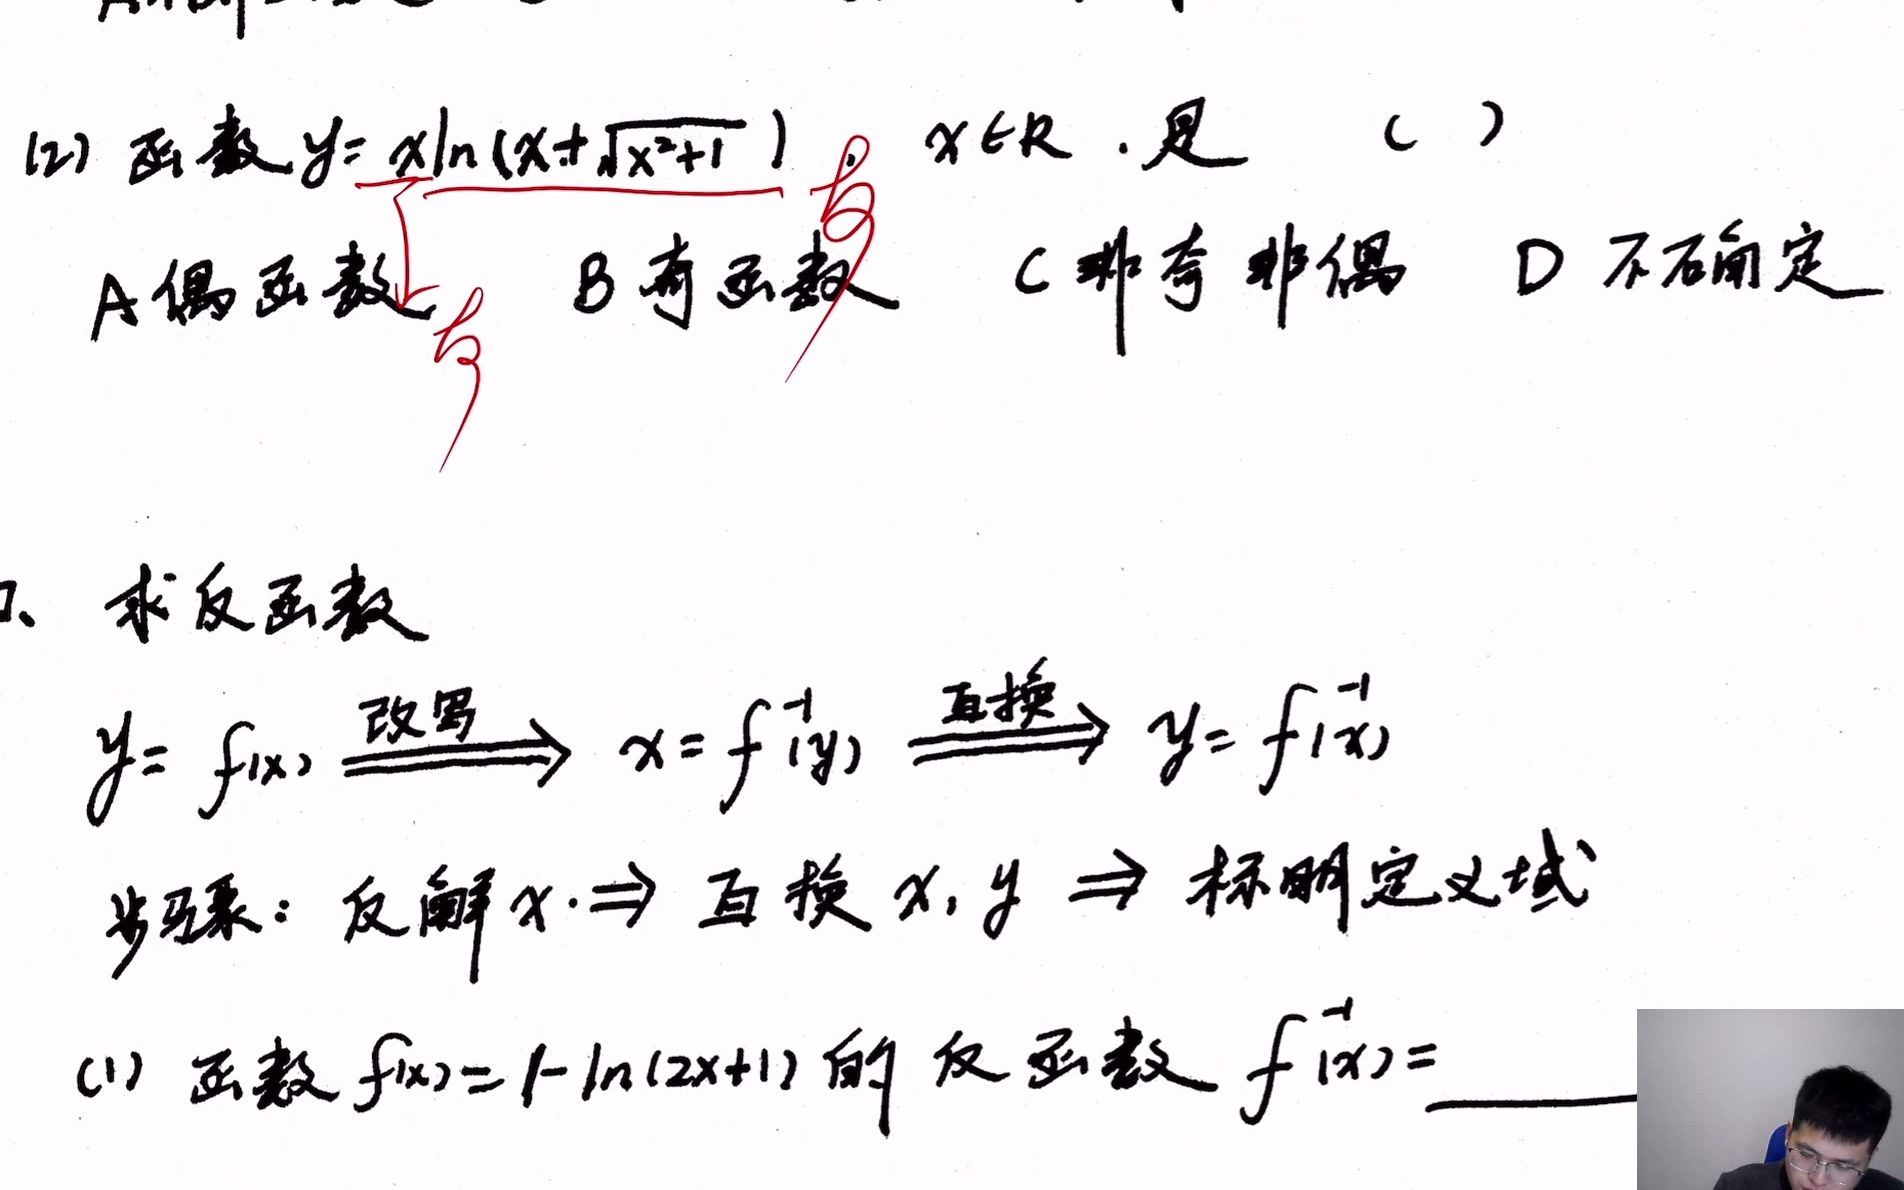 (2) 函数 y= xln(x+√(x²+1)) , x∈R . 是 ( )
奇
A 偶函数 B 奇函数 C 非奇非偶 D 不确定
奇
求反函数
y= f(x) 改写 ⟹ x= f⁻¹(y) 互换 ⟹ y= f⁻¹(x)
步骤: 反解x. ⇒ 互换 x, y ⇒ 标明定义域
(1) 函数 f(x)= 1-ln(2x+1) 的反函数 f⁻¹(x)=